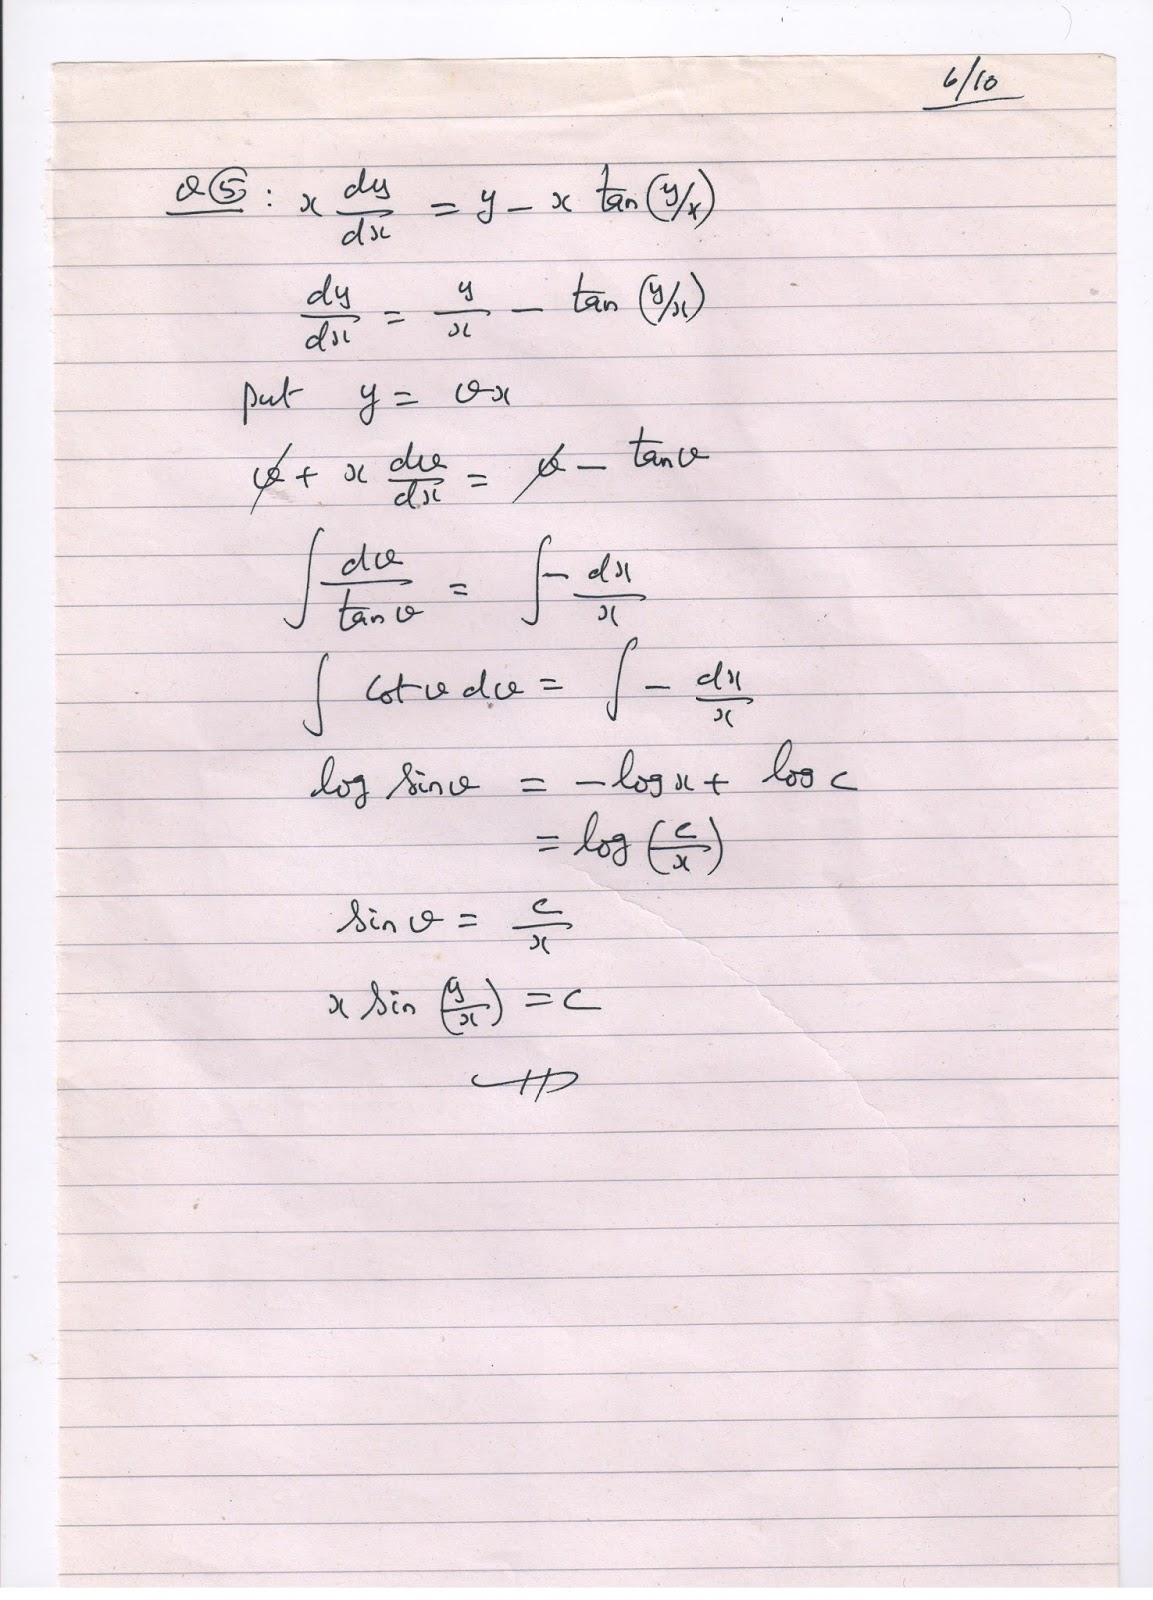 6/10
Q⑤ : x dy/dx = y - x tan(y/x)
dy/dx = y/x - tan (y/x)
put y = vx
v + x dv/dx = v - tan v
∫ dv/tan v = ∫ - dx/x
∫ cot v dv = ∫ - dx/x
log sin v = - log x + log c
= log (c/x)
sin v = c/x
x sin (y/x) = c